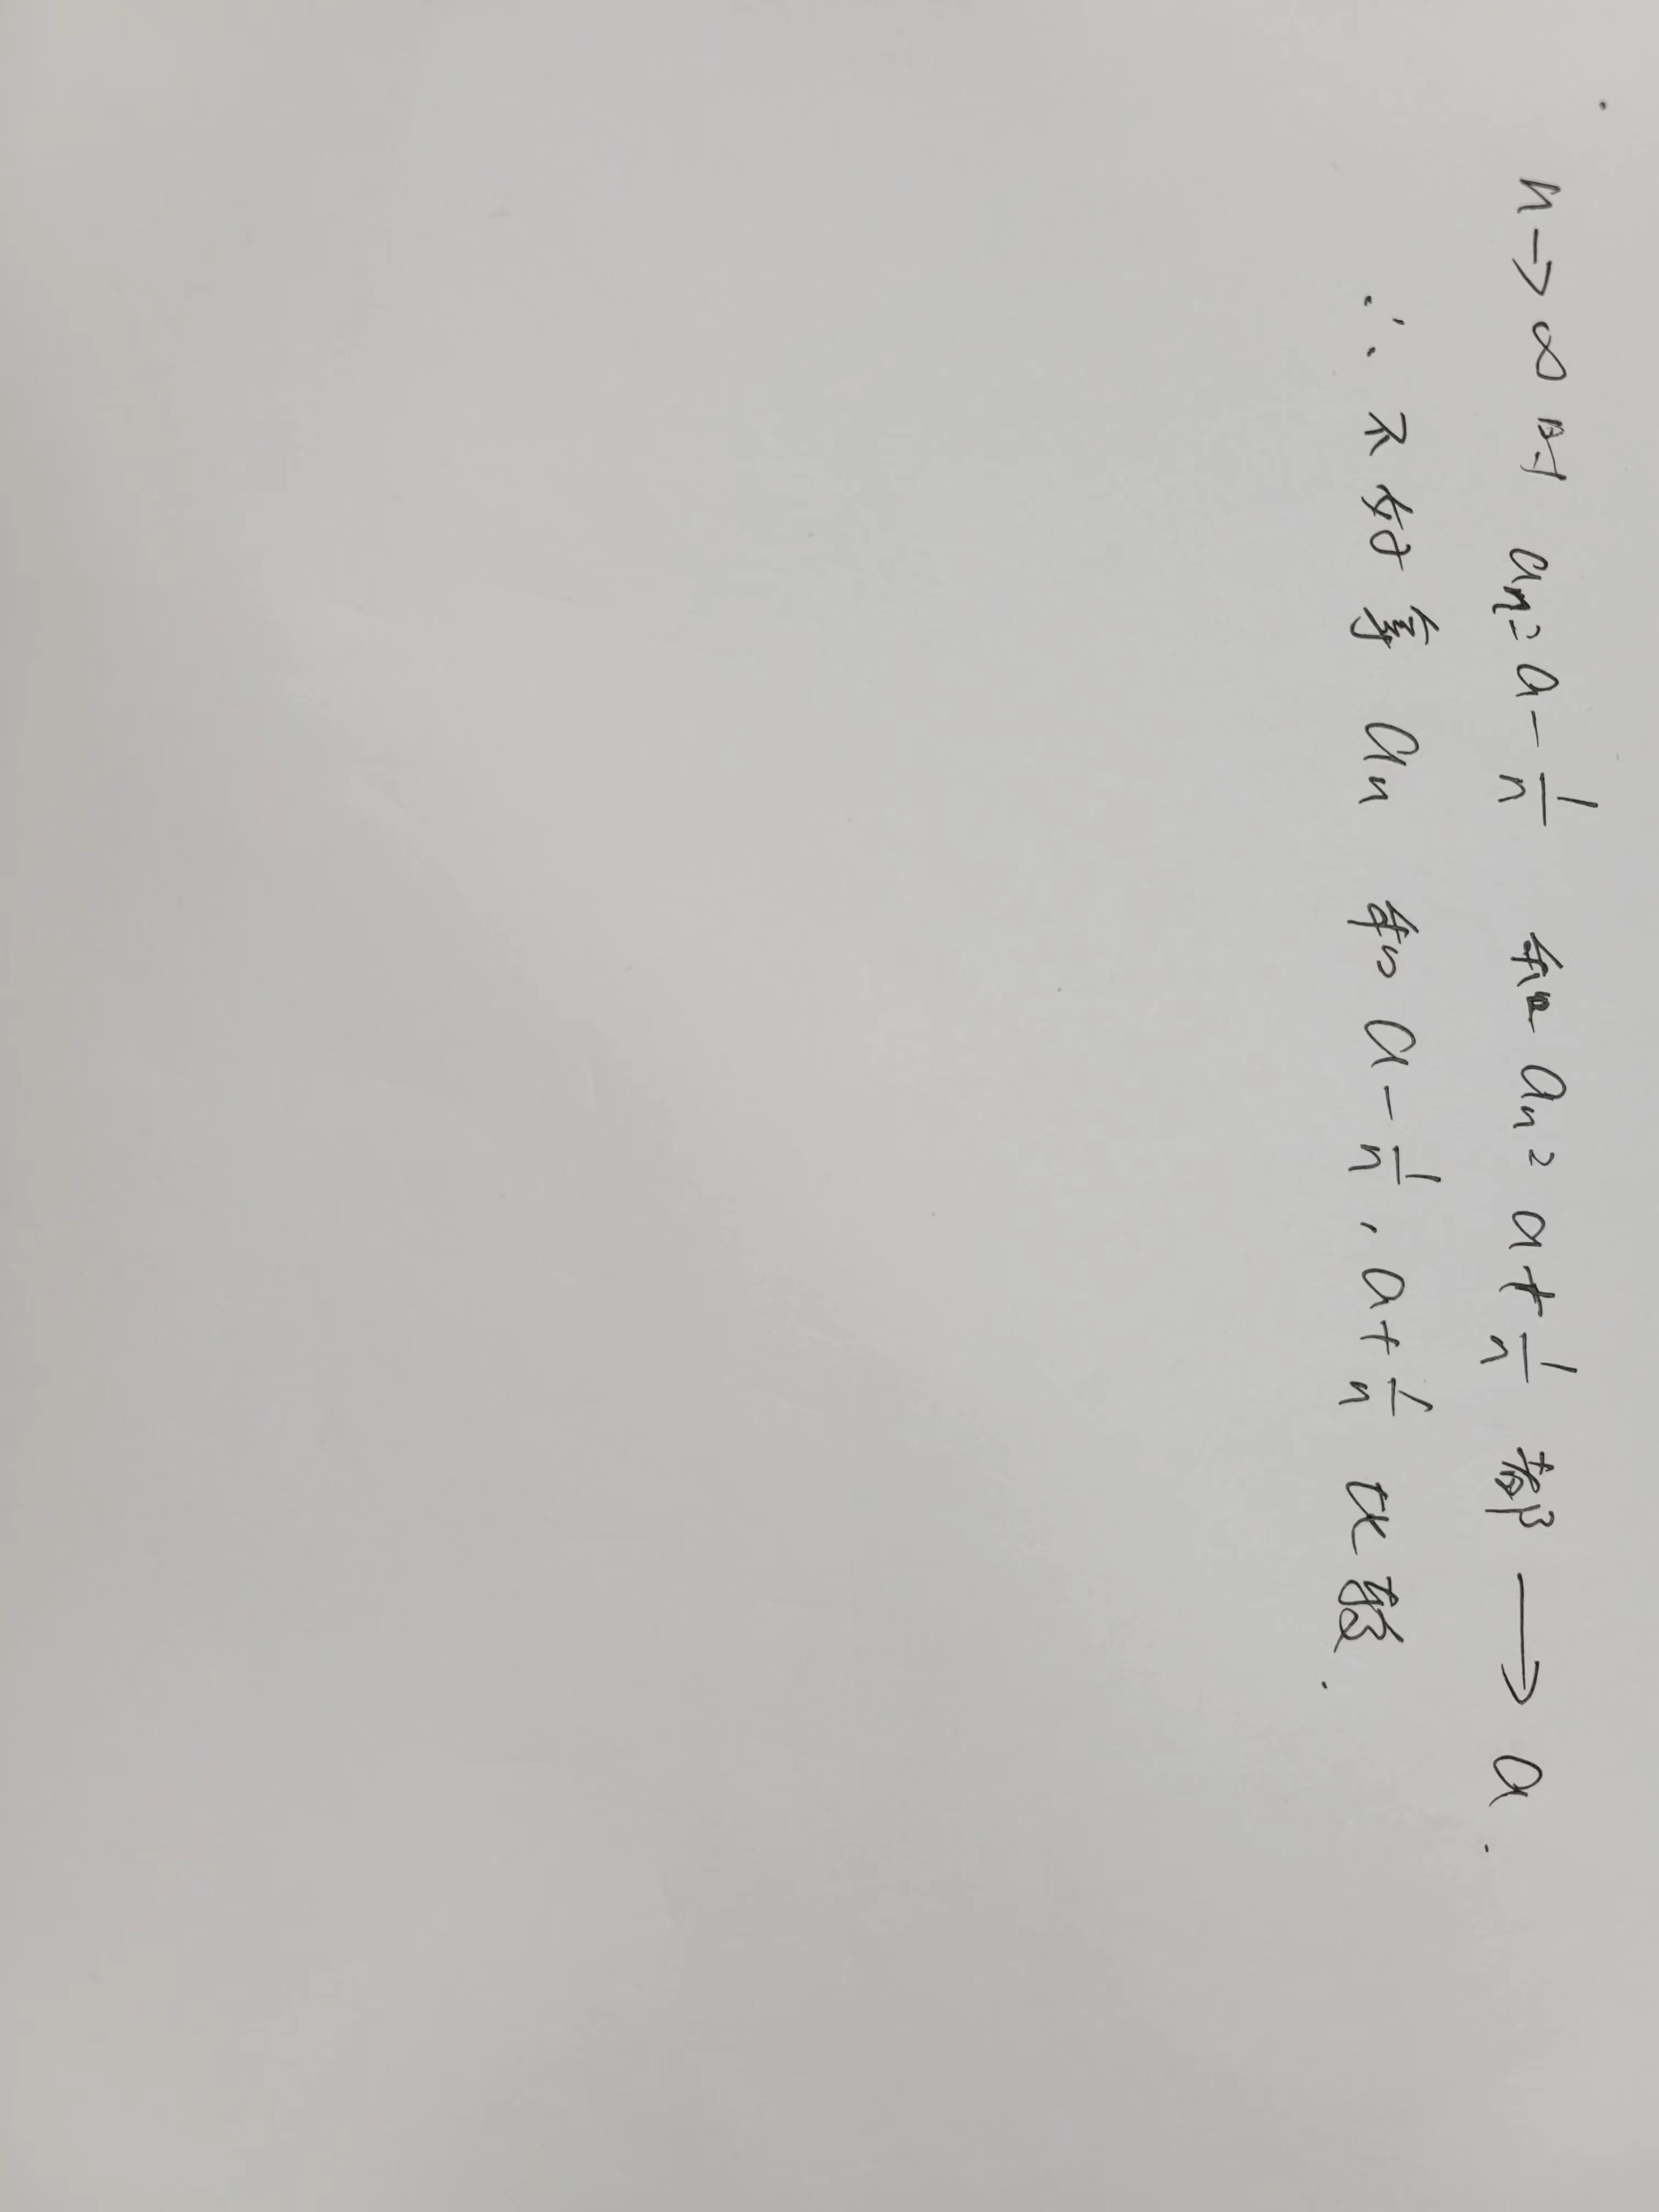 n→∞时 an=a-1/n 和 an=a+1/n 都→a.
∴不好拿 an 和 a-1/n,a+1/n 比较.